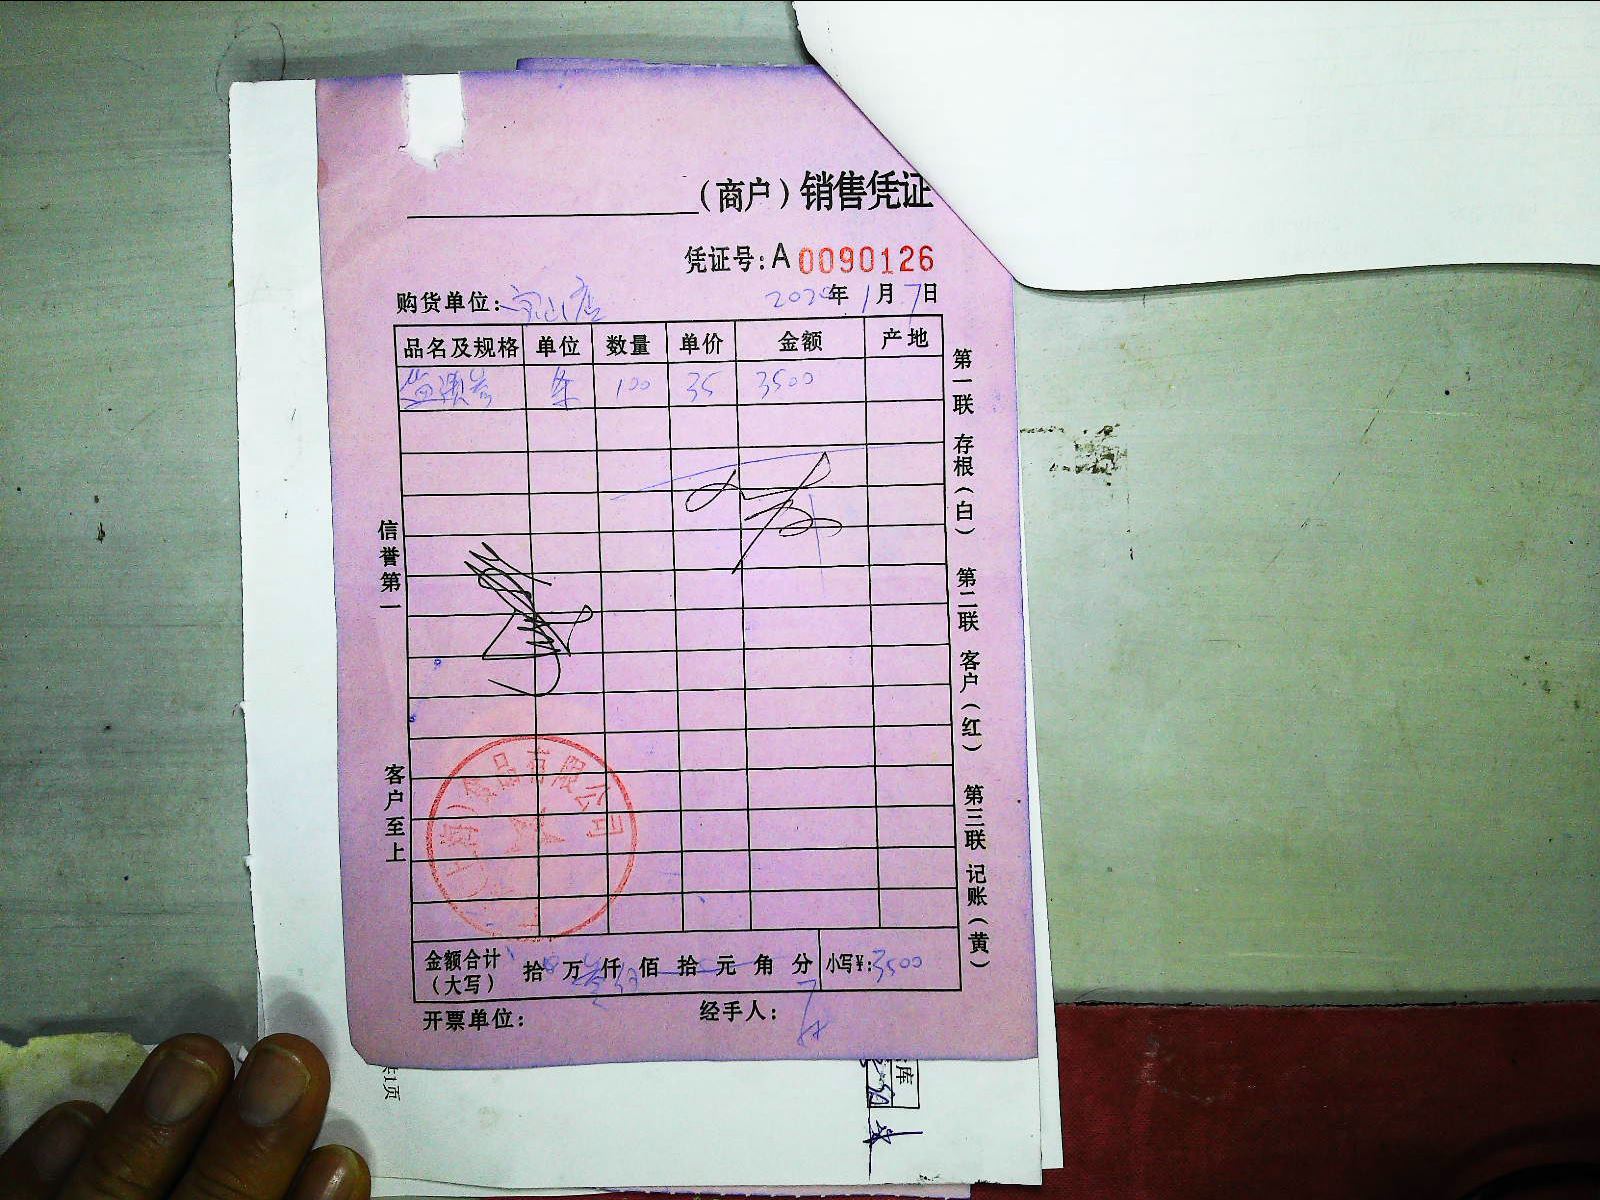 (商户)销售凭证
凭证号:A 0090126
购货单位: 2020年1月7日
品名及规格 单位 数量 单价 金额 产地
条 100 35 3500
第一联 存根(白) 第二联 客户(红) 第三联 记账(黄)
信誉第一
客户至上
食品有限公司
金额合计(大写) 拾 万 仟 佰 拾 元 角 分 小写¥:3500
开票单位: 经手人:
库
共1页